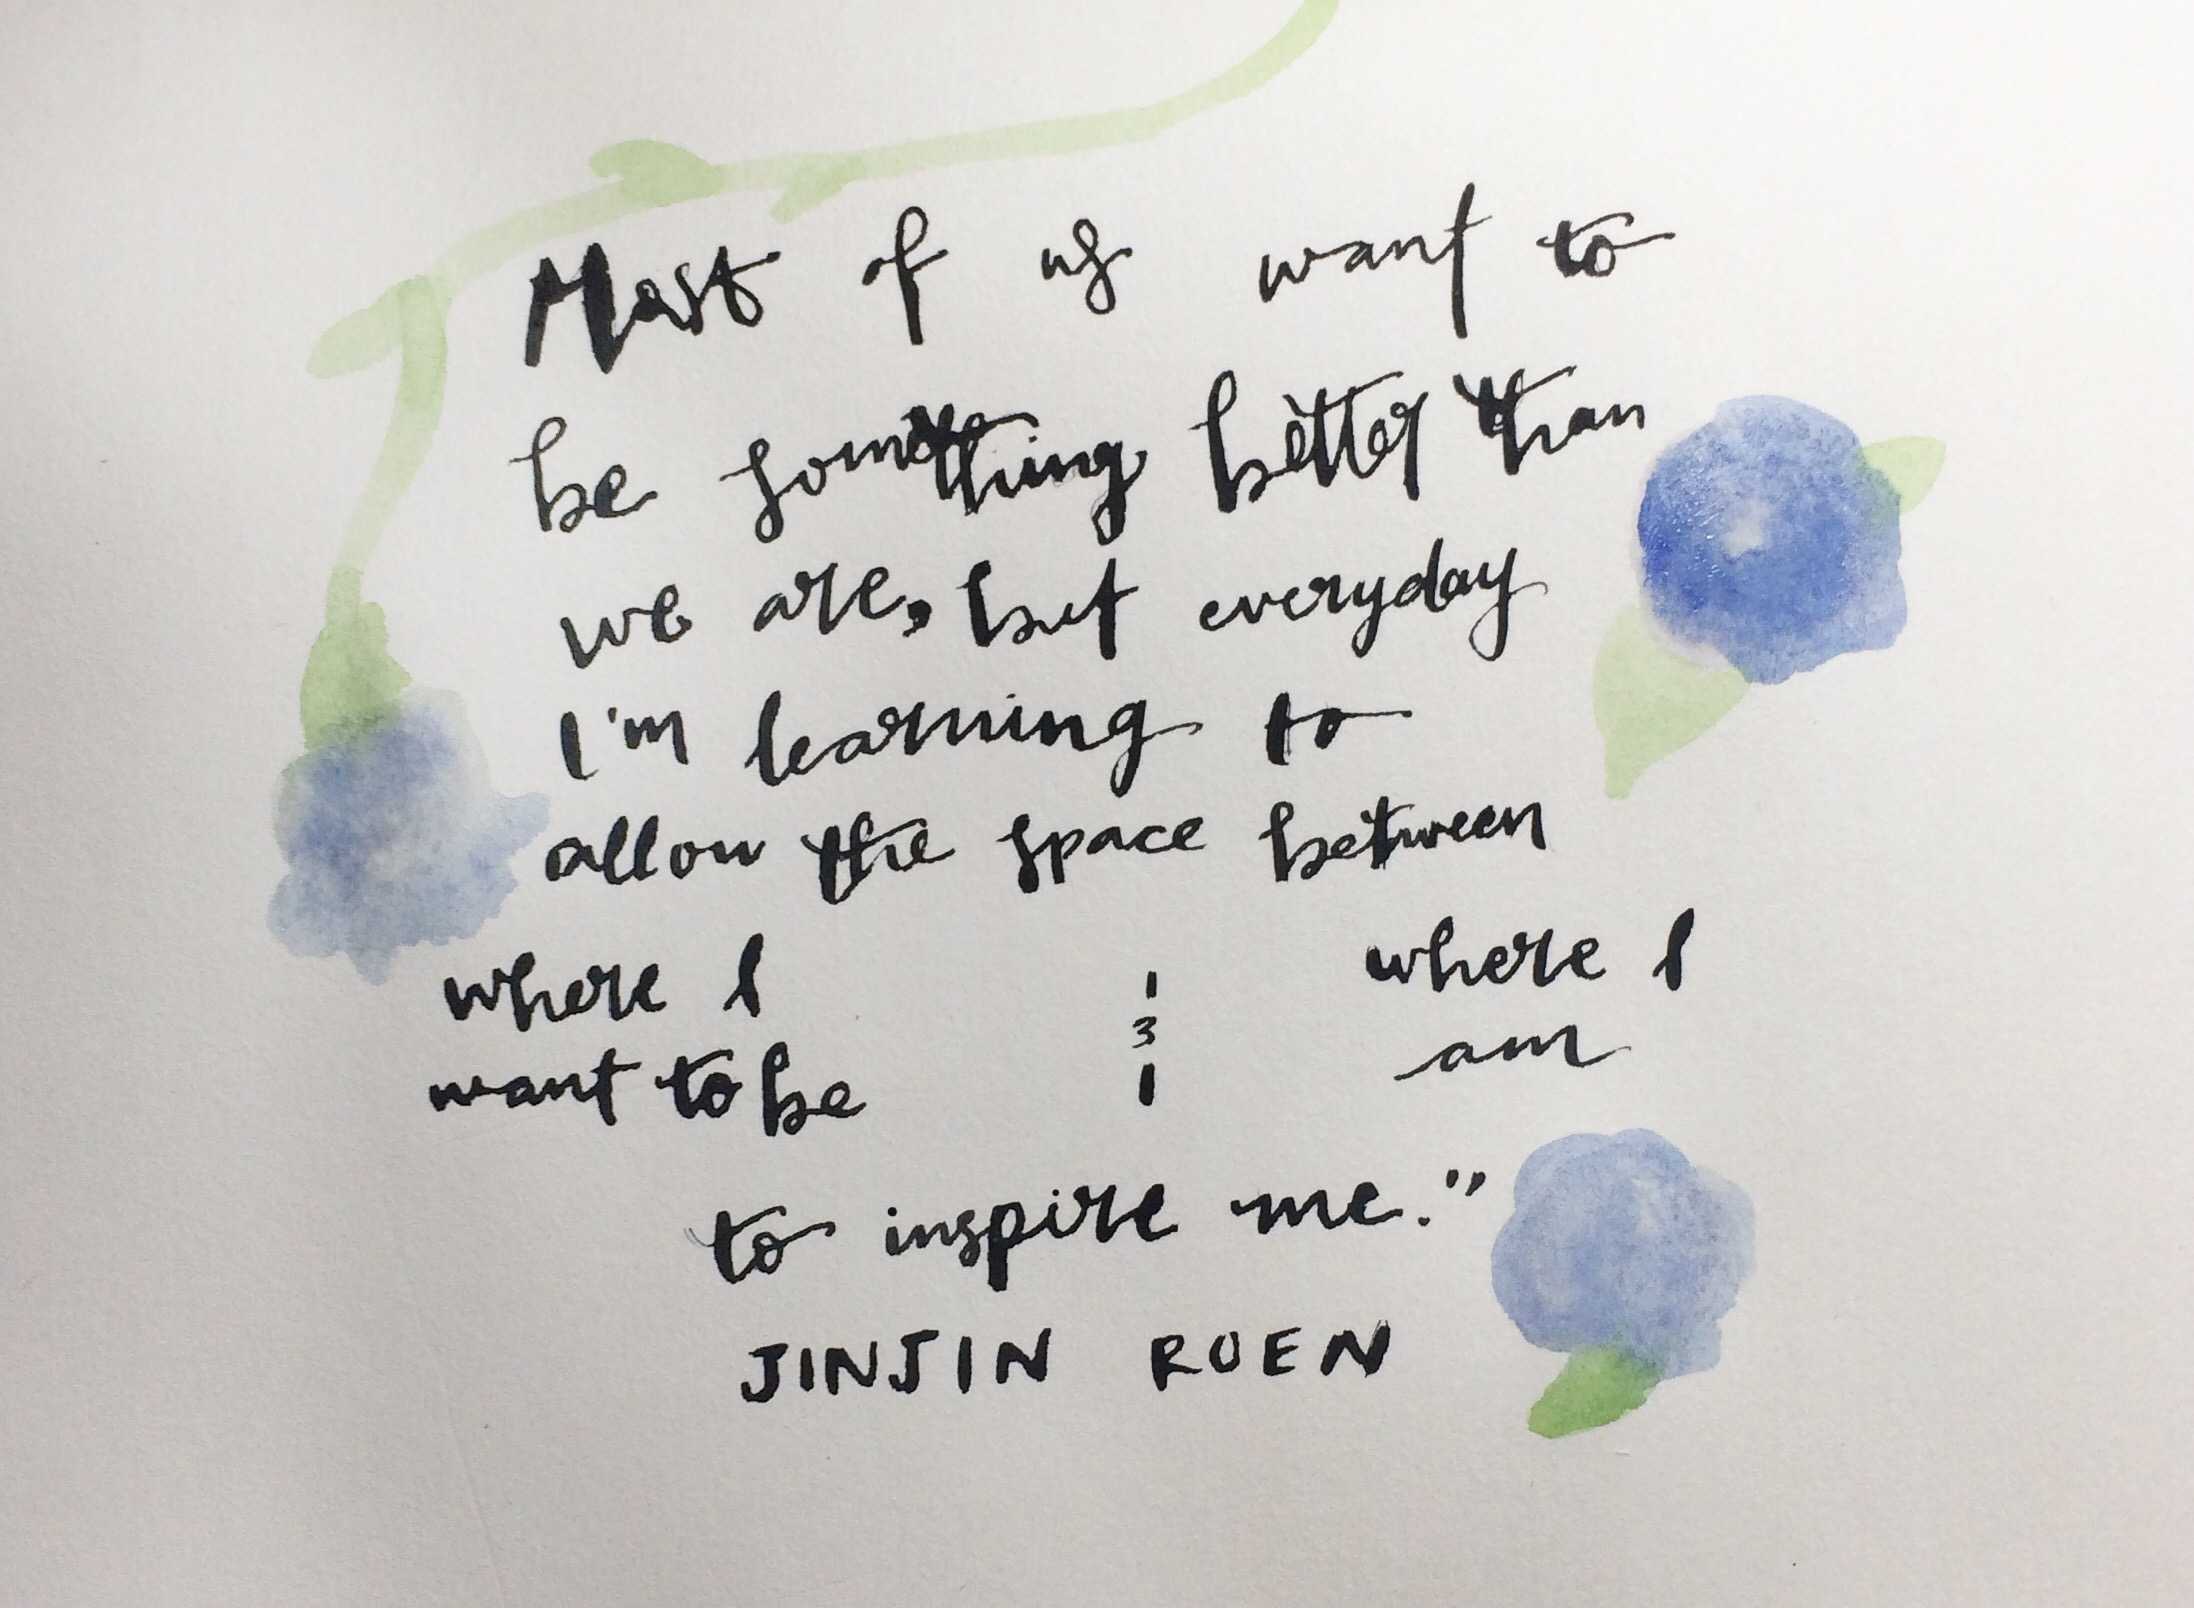 Most of us want to
be something better than
we are, but everyday
I'm learning to
allow the space between
where I & where I
want to be am
to inspire me."
JINJIN ROEN